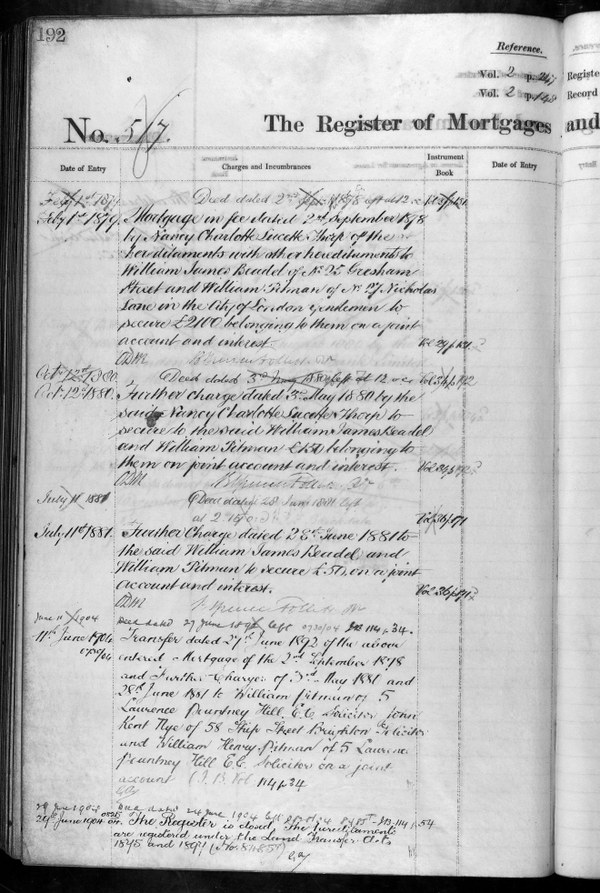 192
Reference.
Vol. 2 p. 247
Vol. 2 p. 148
Registe
Record
No. 517.
The Register of Mortgages and
Date of Entry
Charges and Incumbrances
Instrument
Book
Date of Entry
Feby 1st 1879
Deed dated 2nd Sept 1878 left at 12
Feby 1st 1879.
Mortgage in fee dated 2nd September 1878
by Nancy Charlotte Thorp of the
hereditaments with other hereditaments to
William James Beadel of No. 25 Gresham
Street and William Pitman of No. 27 Nicholas
Lane in the City of London gentlemen to
secure £2100 belonging to them on a joint
account and interest.
Oct. 12th 1880.
Deed dated 3rd May 1880 left at 12
Oct. 12th 1880.
Further charge dated 3rd May 1880 by the
said Nancy Charlotte Thorp to
secure to the said William James Beadel
and William Pitman £150 belonging to
them on joint account and interest.
July 11 1881
Deed dated 28 June 1881 left
at 2
Vol 36 p 91
July 11th 1881.
Further Charge dated 28th June 1881 to
the said William James Beadel and
William Pitman to secure £50, on a joint
account and interest.
Vol 36 p 91
June 11 1904
Deed dated 27 June 1892 left JB 1114 p. 34.
11th June 1904
Transfer dated 27th June 1892 of the above
entered Mortgage of the 2nd September 1878
and Further Charges of 3rd May 1880 and
28th June 1881 to William Pitman of 5
Laurence Pountney Hill E.C. Solicitor John
Kent Nye of 58 Ship Street Brighton Solicitor
and William Henry Pitman of 5 Laurence
Pountney Hill E.C. Solicitor on a joint
account (I. B. Vol 1114 p 34
29 June 1904
Deed dated 24 June 1904 left
29th June 1904
The Register is closed. The hereditaments
are registered under the Land Transfer Acts
1875 and 1897